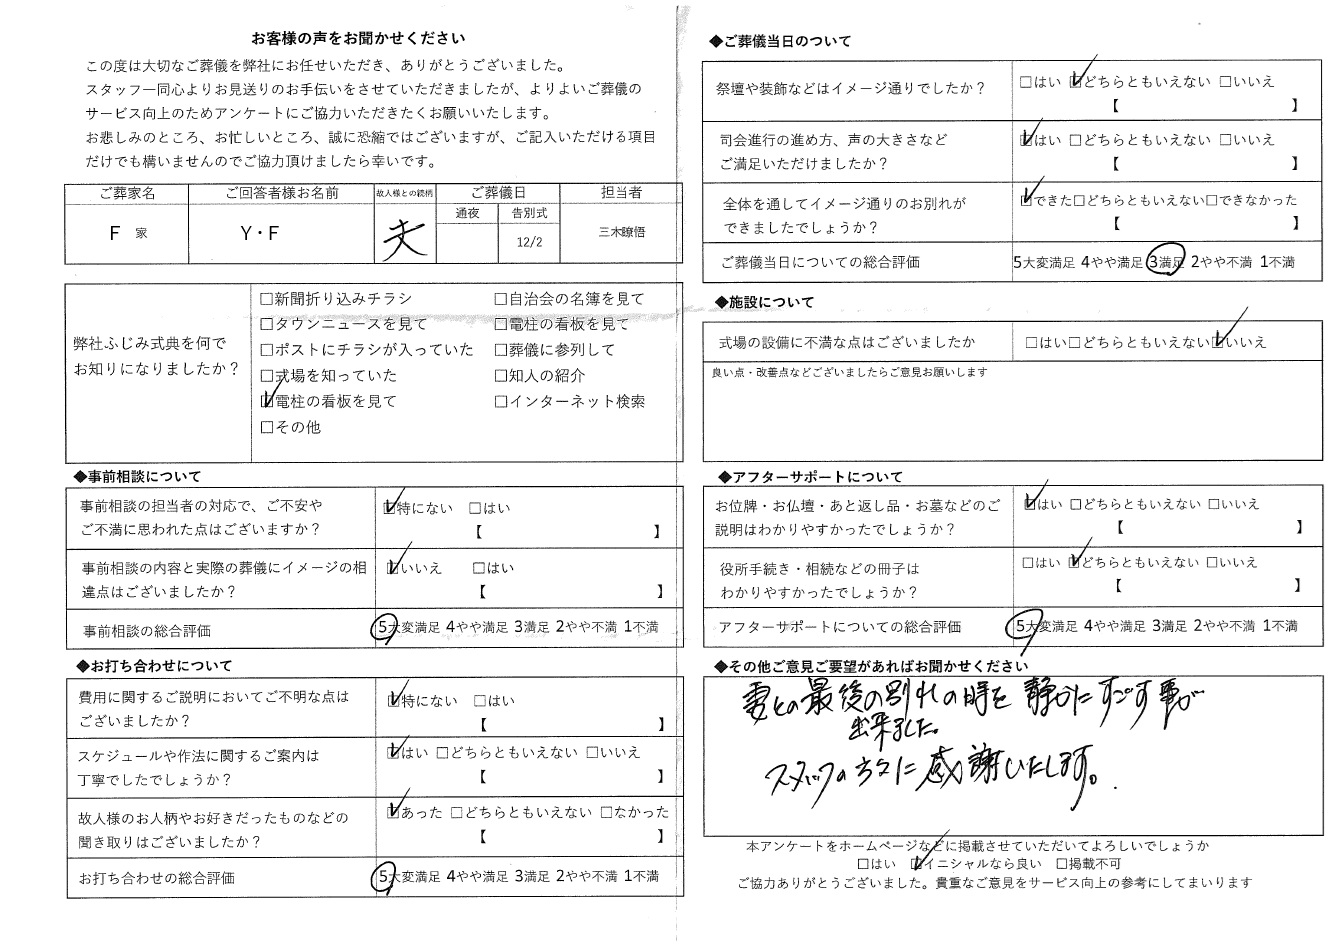 お客様の声をお聞かせください
この度は大切なご葬儀を弊社にお任せいただき、ありがとうございました。
スタッフ一同心よりお見送りのお手伝いをさせていただきましたが、よりよいご葬儀の
サービス向上のためアンケートにご協力いただきたくお願いいたします。
お悲しみのところ、お忙しいところ、誠に恐縮ではございますが、ご記入いただける項目
だけでも構いませんのでご協力頂けましたら幸いです。
ご葬家名 ご回答者様お名前 故人様との続柄 ご葬儀日 担当者
通夜 告別式
F 家 Y・F 夫 12/2 三木瞭悟
弊社ふじみ式典を何で
お知りになりましたか?
□新聞折り込みチラシ □自治会の名簿を見て
□タウンニュースを見て □電柱の看板を見て
□ポストにチラシが入っていた □葬儀に参列して
□式場を知っていた □知人の紹介
☑電柱の看板を見て □インターネット検索
□その他
◆事前相談について
事前相談の担当者の対応で、ご不安や
ご不満に思われた点はございますか?
☑特にない □はい
【 】
事前相談の内容と実際の葬儀にイメージの相
違点はございましたか?
☑いいえ □はい
【 】
事前相談の総合評価 5大変満足 4やや満足 3満足 2やや不満 1不満
◆お打ち合わせについて
費用に関するご説明においてご不明な点は
ございましたか?
☑特にない □はい
【 】
スケジュールや作法に関するご案内は
丁寧でしたでしょうか?
☑はい □どちらともいえない □いいえ
【 】
故人様のお人柄やお好きだったものなどの
聞き取りはございましたか?
☑あった □どちらともいえない □なかった
【 】
お打ち合わせの総合評価 5大変満足 4やや満足 3満足 2やや不満 1不満
◆ご葬儀当日のついて
祭壇や装飾などはイメージ通りでしたか?
□はい ☑どちらともいえない □いいえ
【 】
司会進行の進め方、声の大きさなど
ご満足いただけましたか?
☑はい □どちらともいえない □いいえ
【 】
全体を通してイメージ通りのお別れが
できましたでしょうか?
☑できた□どちらともいえない□できなかった
【 】
ご葬儀当日についての総合評価 5大変満足 4やや満足 3満足 2やや不満 1不満
◆施設について
式場の設備に不満な点はございましたか □はい□どちらともいえない☑いいえ
良い点・改善点などございましたらご意見お願いします
◆アフターサポートについて
お位牌・お仏壇・あと返し品・お墓などのご
説明はわかりやすかったでしょうか?
☑はい □どちらともいえない □いいえ
【 】
役所手続き・相続などの冊子は
わかりやすかったでしょうか?
□はい ☑どちらともいえない □いいえ
【 】
アフターサポートについての総合評価 5大変満足 4やや満足 3満足 2やや不満 1不満
◆その他ご意見ご要望があればお聞かせください
妻との最後の別れの時を静かにすごす事が
出来ました。
スタッフの方々に感謝いたします。
本アンケートをホームページなどに掲載させていただいてよろしいでしょうか
□はい ☑イニシャルなら良い □掲載不可
ご協力ありがとうございました。貴重なご意見をサービス向上の参考にしてまいります